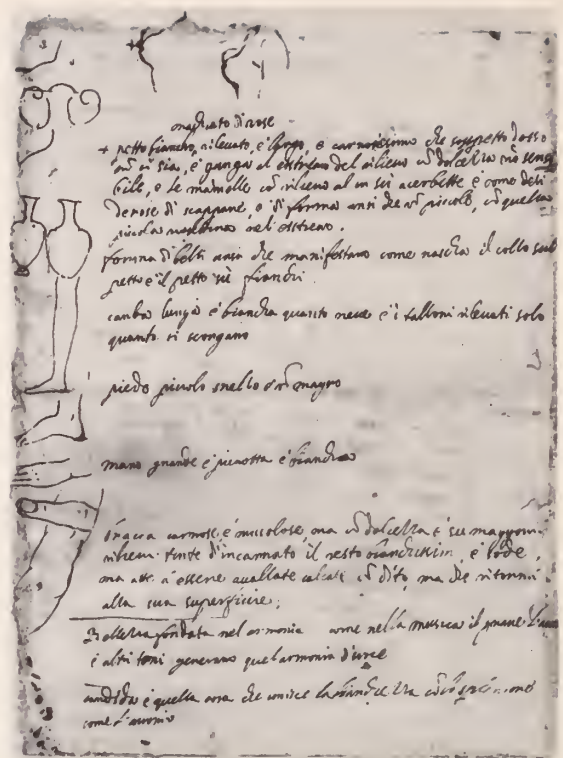 machiato di rose
+ petto biancho, rileuato, è largo, è carnosissimo che sospetto d'osso
non ui sia, è giunga al estremo del rilieuo cō dolcezza nō sensi
bile, e le mamolle cō rilieuo al in sù acerbette è come desi
derose di scappare, di forma anzi che nō piccole, cō quella
piccola nel estremo.
forma di belti uasi che manifestano come nascha il collo sul
petto è il petto su fianchi
camba lunga è biancha quanto neue è i talloni rileuati solo
quanto si scorgano
piedo piccolo snello è nō magro
mano grande è picnotta è biancha
carnose, è muscolose, ma cō dolcezza è su maggiori
rilieui tinte d'incarnato il resto bianchissim, è sode,
ma atte à essere auallate calcate cō dito, ma che ritorni
alla sua superficie;
Bellezza fondata nel armonia come nella musica il graue
è altri toni generano quel armonia
candida è quella cosa che unisce la bianchezza cō lo
come l'auorio